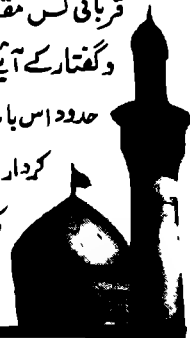 قربانی کس مقـ
و گفتار کے آئیـ
حدود اس با
کردار